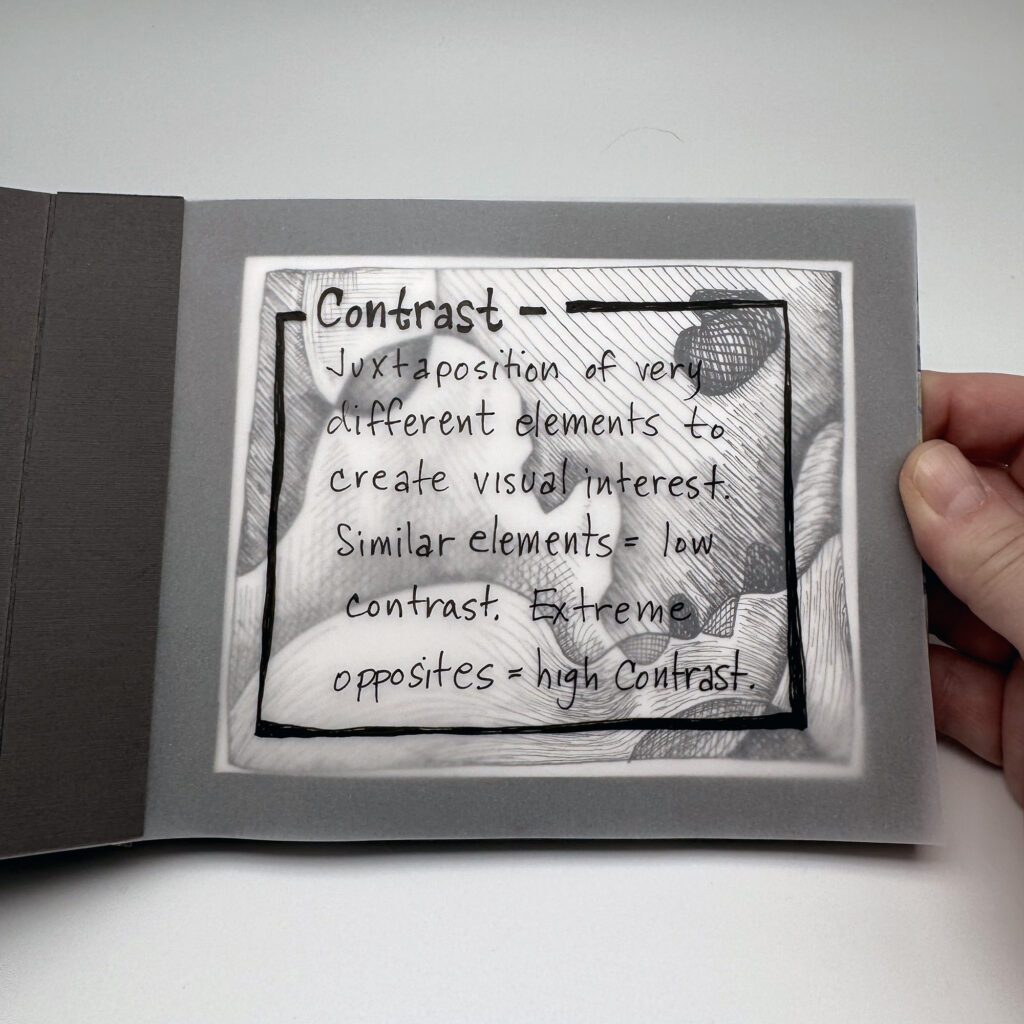 Contrast -
Juxtaposition of very
different elements to
create visual interest.
Similar elements = low
contrast. Extreme
opposites = high Contrast.